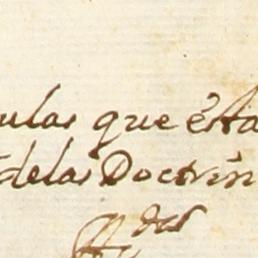 ulas que ésta
delas Doctrin